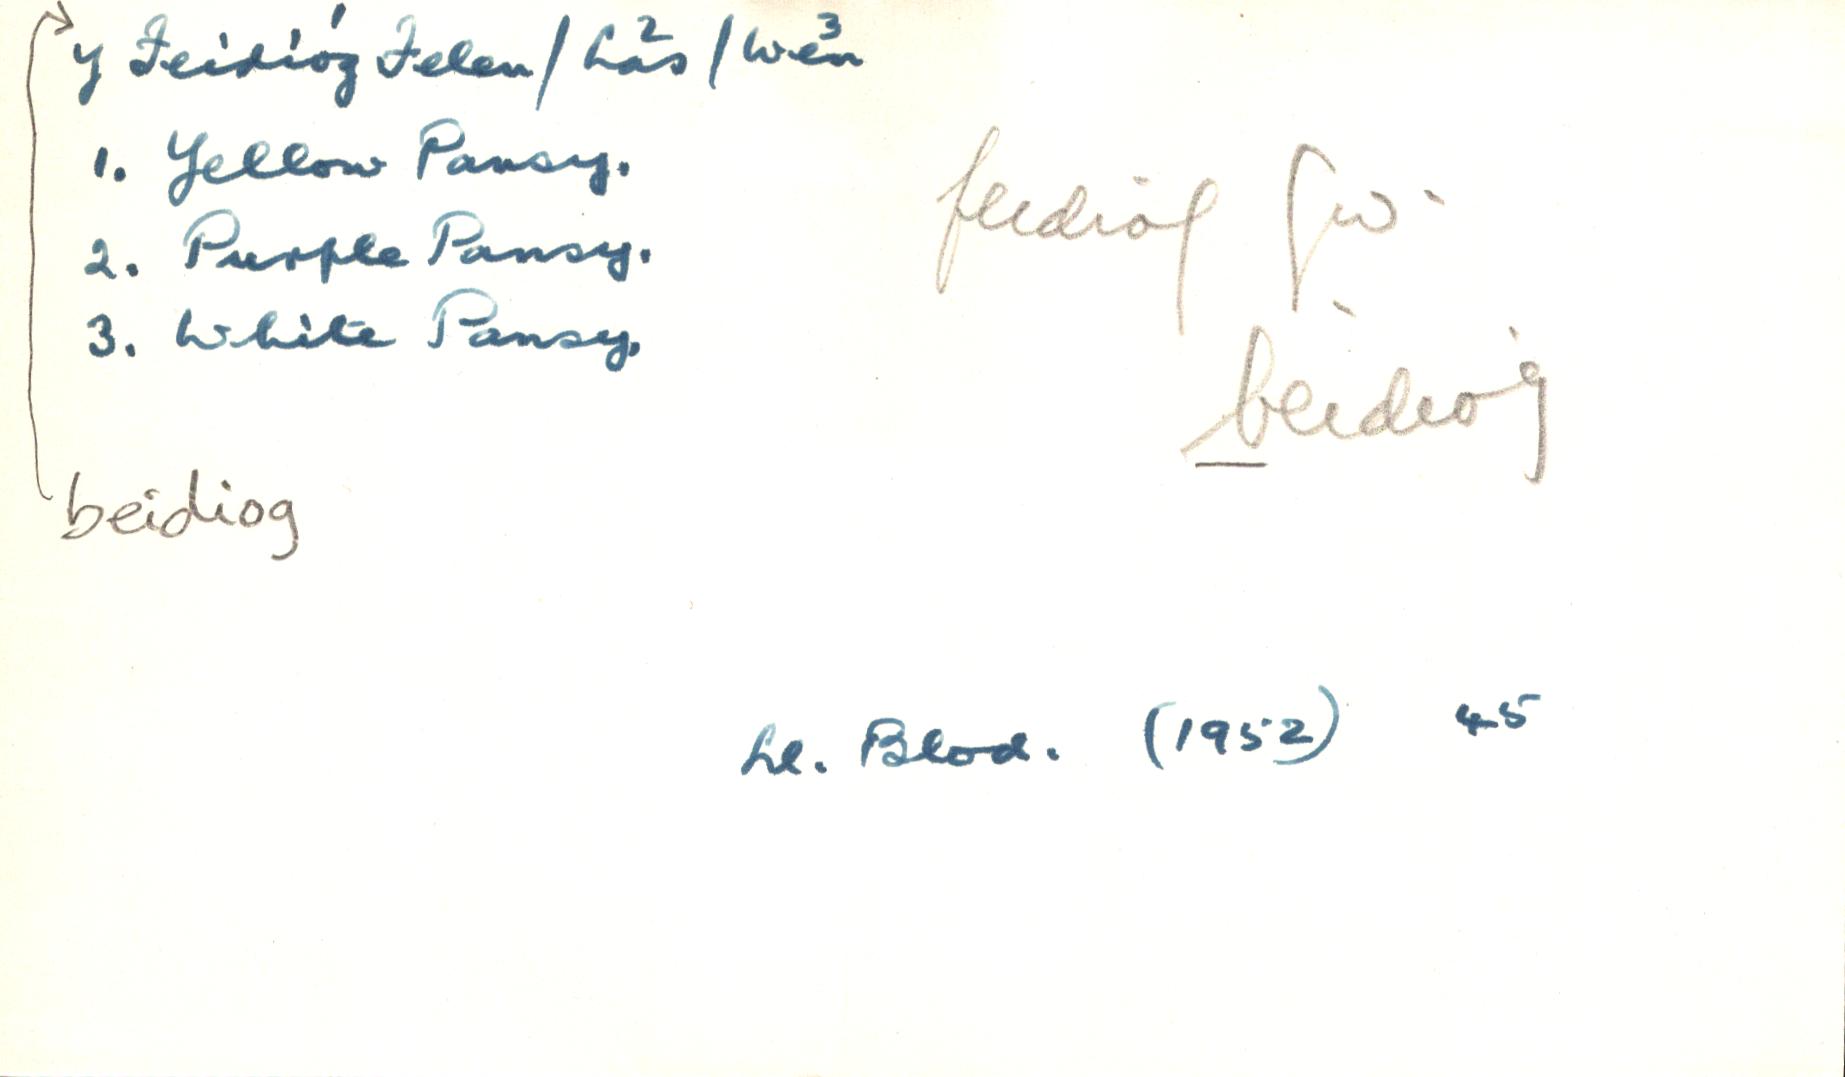 y Feidióg Felen¹/Las²/Wen³
1. Yellow Pansy.
2. Purple Pansy.
3. White Pansy.
feidiog gw.
beidiog
beidiog
Ll. Blod. (1952) 45